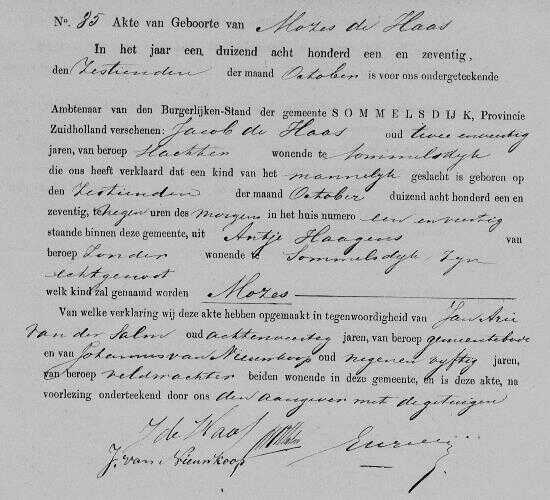 No. 85 Akte van Geboorte van Mozes de Haas
In het jaar een duizend acht honderd een en zeventig,
den Zestienden der maand October is voor ons ondergeteekende
Ambtenaar van den Burgerlijken-Stand der gemeente SOMMELSDIJK, Provincie
Zuidholland verschenen: Jacob de Haas oud twee en veertig
jaren, van beroep Slachter wonende te Sommelsdyk
die ons heeft verklaard dat een kind van het mannelyk geslacht is geboren op
den Zestienden der maand October duizend acht honderd een en
zeventig, te negen uren des morgens in het huis numero een en veertig
staande binnen deze gemeente, uit Antje Haagens van
beroep Zonder wonende te Sommelsdyk, Zyn
echtgenoot
welk kind zal genaamd worden Mozes
Van welke verklaring wij deze akte hebben opgemaakt in tegenwoordigheid van Jan Arie
van der Salm oud achtenveertig jaren, van beroep gemeentebode
en van Johannes van Nieuwkoop oud negen en vyftig jaren,
van beroep veldwachter beiden wonende in deze gemeente, en is deze akte, na
voorlezing onderteekend door ons den aangever met de getuigen
J de Haas
J. van Nieuwkoop